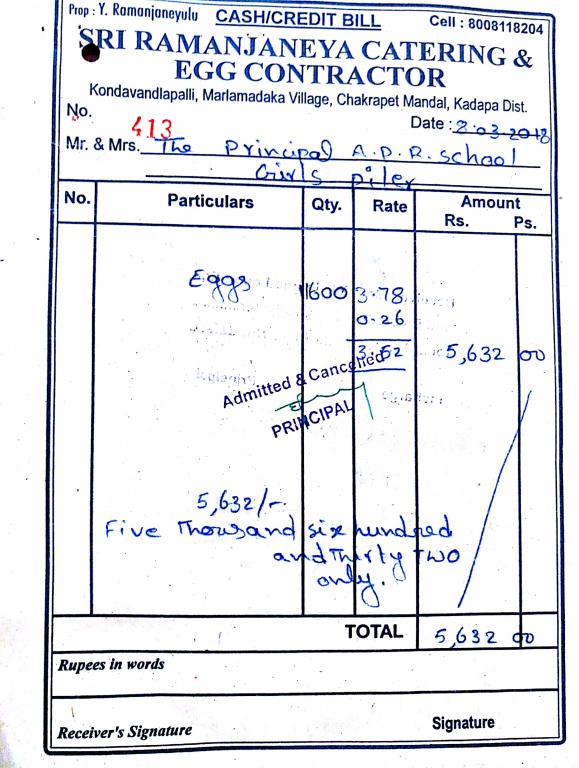 Prop : Y. Ramanjaneyulu CASH/CREDIT BILL Cell : 8008118204
SRI RAMANJANEYA CATERING &
EGG CONTRACTOR
Kondavandlapalli, Marlamadaka Village, Chakrapet Mandal, Kadapa Dist.
No. 413 Date : 2.03.2018
Mr. & Mrs. The Principal A.P.R. School
Girls piler
No. Particulars Qty. Rate Amount
Rs. Ps.
Eggs 1600 3.78
0.26
3.52 5,632 00
Admitted & Cancelled
PRINCIPAL
5,632/-
Five Thousand six hundred
and Thirty Two
only.
TOTAL 5,632 00
Rupees in words
Receiver's Signature Signature